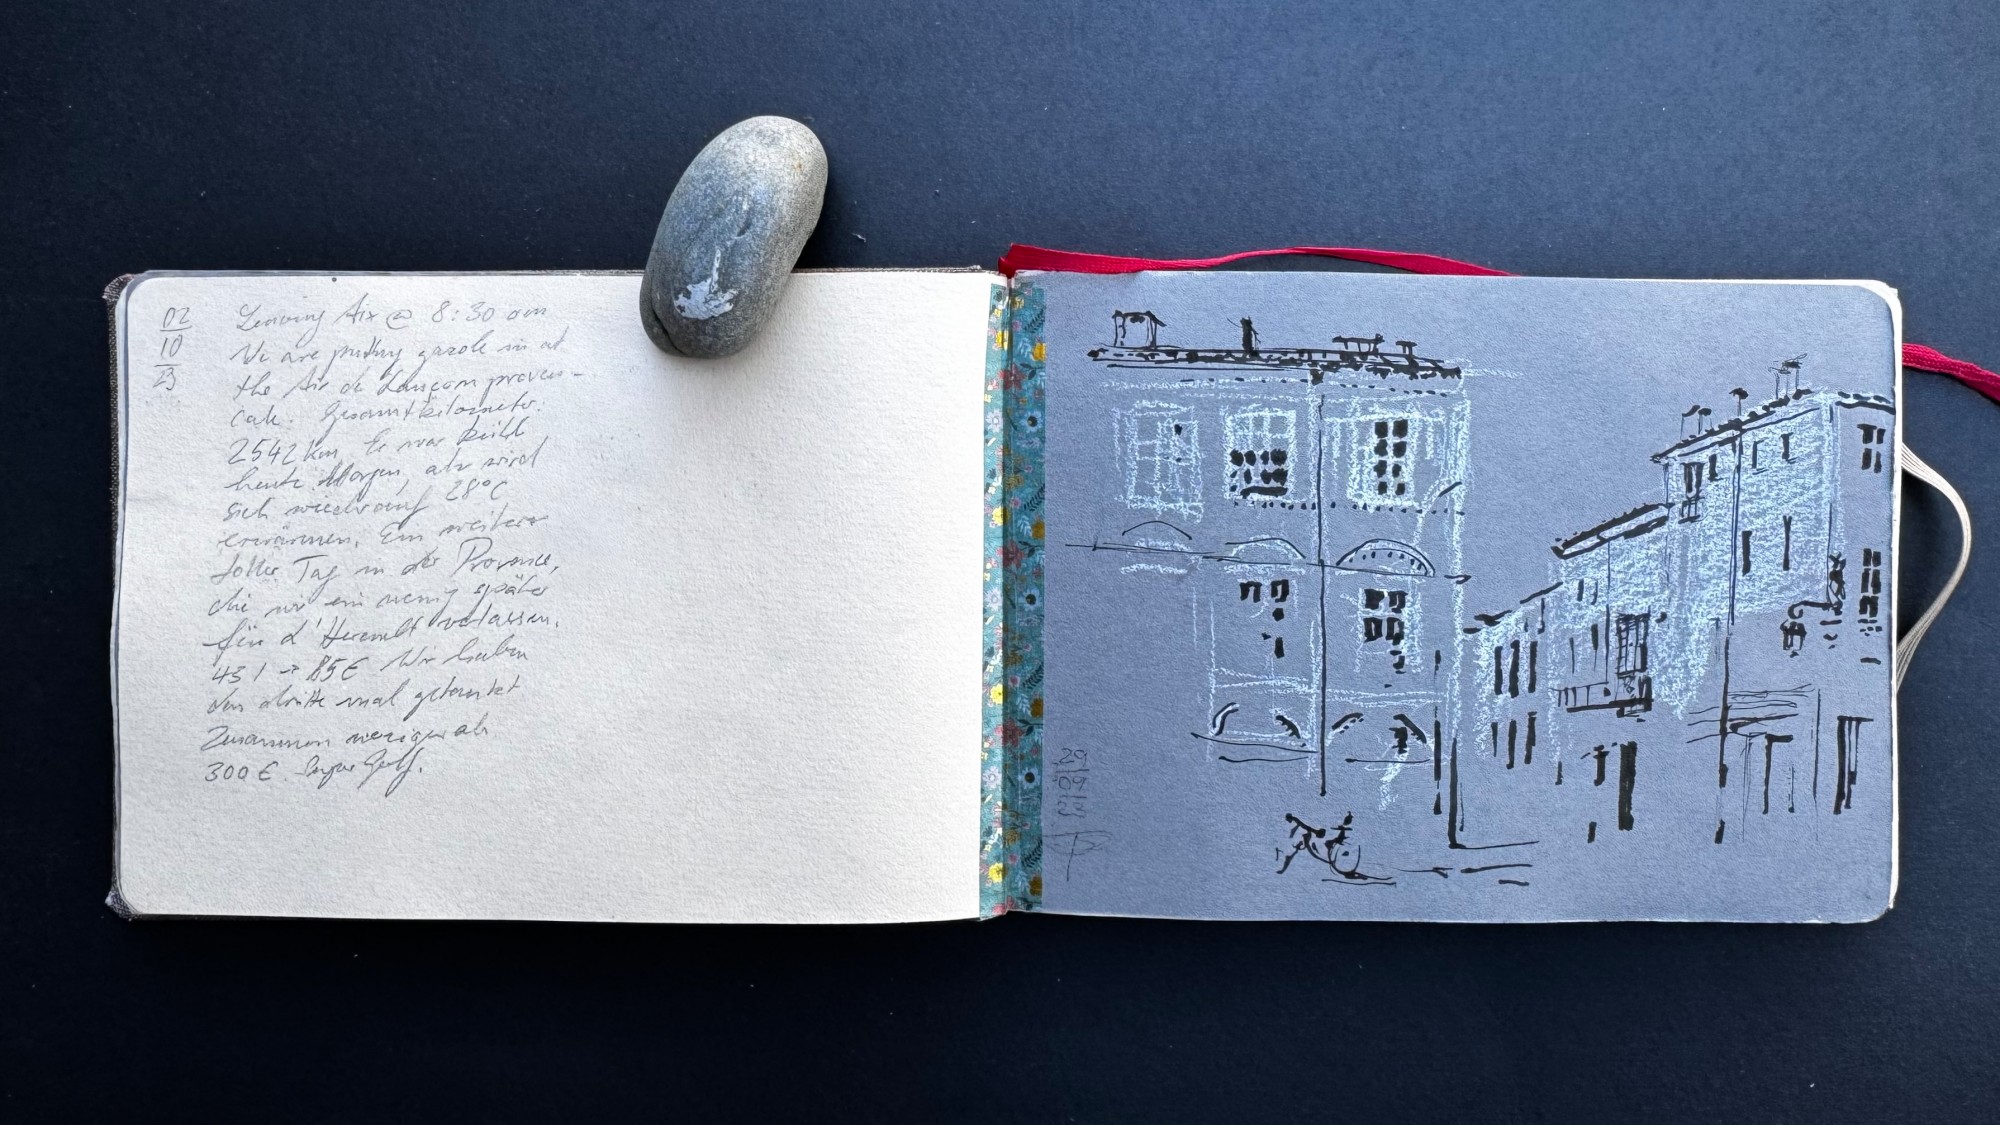 02
10
23
Leaving Aix @ 8:30 am
We are putting gazole in at
the Air de Lançon proven-
cale. Gesamtkilometer.
2542 km. Es war kühl
heute Morgen, aber wird
sich wieder auf 28°C
erwärmen. Ein weiterer
toller Tag in der Provence,
die wir ein wenig später
für d'Herault verlassen.
43 l → 85€ Wir haben
das dritte mal getankt
Zusammen weniger als
300 €. Super Golf.
29
09
23